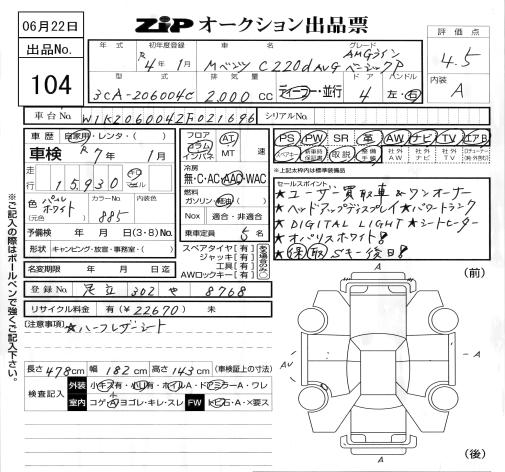 06月22日
出品No.
104
ZiP オークション出品票
年式 初年度登録 車名 グレード 評価点
R 4年 1月 Mベンツ C220d AVG AMGライン ベーシックP
4.5
内装
A
型式 排気量 ドア ハンドル
3CA-206004C 2.000 ディーラー・並行 4 左・右
車台No. W1K2060042F021696 シリアルNo.
車歴 自家用・レンタ・( )
車検 R 7年 1月
走行 15,930 キロ
フロア コラム インパネ AT MT 速
冷房 無・C・AC・AAC・WAC
燃料 ガソリン・軽油・( )
Nox 適合・非適合
乗車定員 5名
色 パール ホワイト (元色) カラーNo. 885 内装色
予備検 年 月 日(3・8)No.
形状 キャンピング・放宣・事務室・( )
名変期限 年 月 日迄
スペアタイヤ[有]
ジャッキ[有]
工具[有]
AWロックキー[有]
ある場合のみ○
PS PW SR 革 AW ナビ TV エアB
スペアキー 新車時保証書 取説 整備手帳 社外AW 社外ナビ 社外TV
※上記太枠内は標準装備品
セールスポイント
★ユーザー買取車&ワンオーナー
★ヘッドアップディスプレイ★パワートランク
★DIGITAL LIGHT★シートヒーター
★オパリスホワイト!
★保取Sキー後日!
登録No. 足立 302 や 8768
リサイクル料金 有(¥22670) 未
[注意事項] ★ハーフレザーシート
長さ 478cm 幅 182cm 高さ 143cm (車検証上の寸法)
検査記入 外装 小キズ有・小凹有・ホイルA・ドアミラーA・ワレ
室内 コゲ・ヨゴレ・キレ・スレ FW トビ石・A・×要ス
※ご記入の際はボールペンで強くご記入下さい。
(前)
A
AU
A
A
(後)